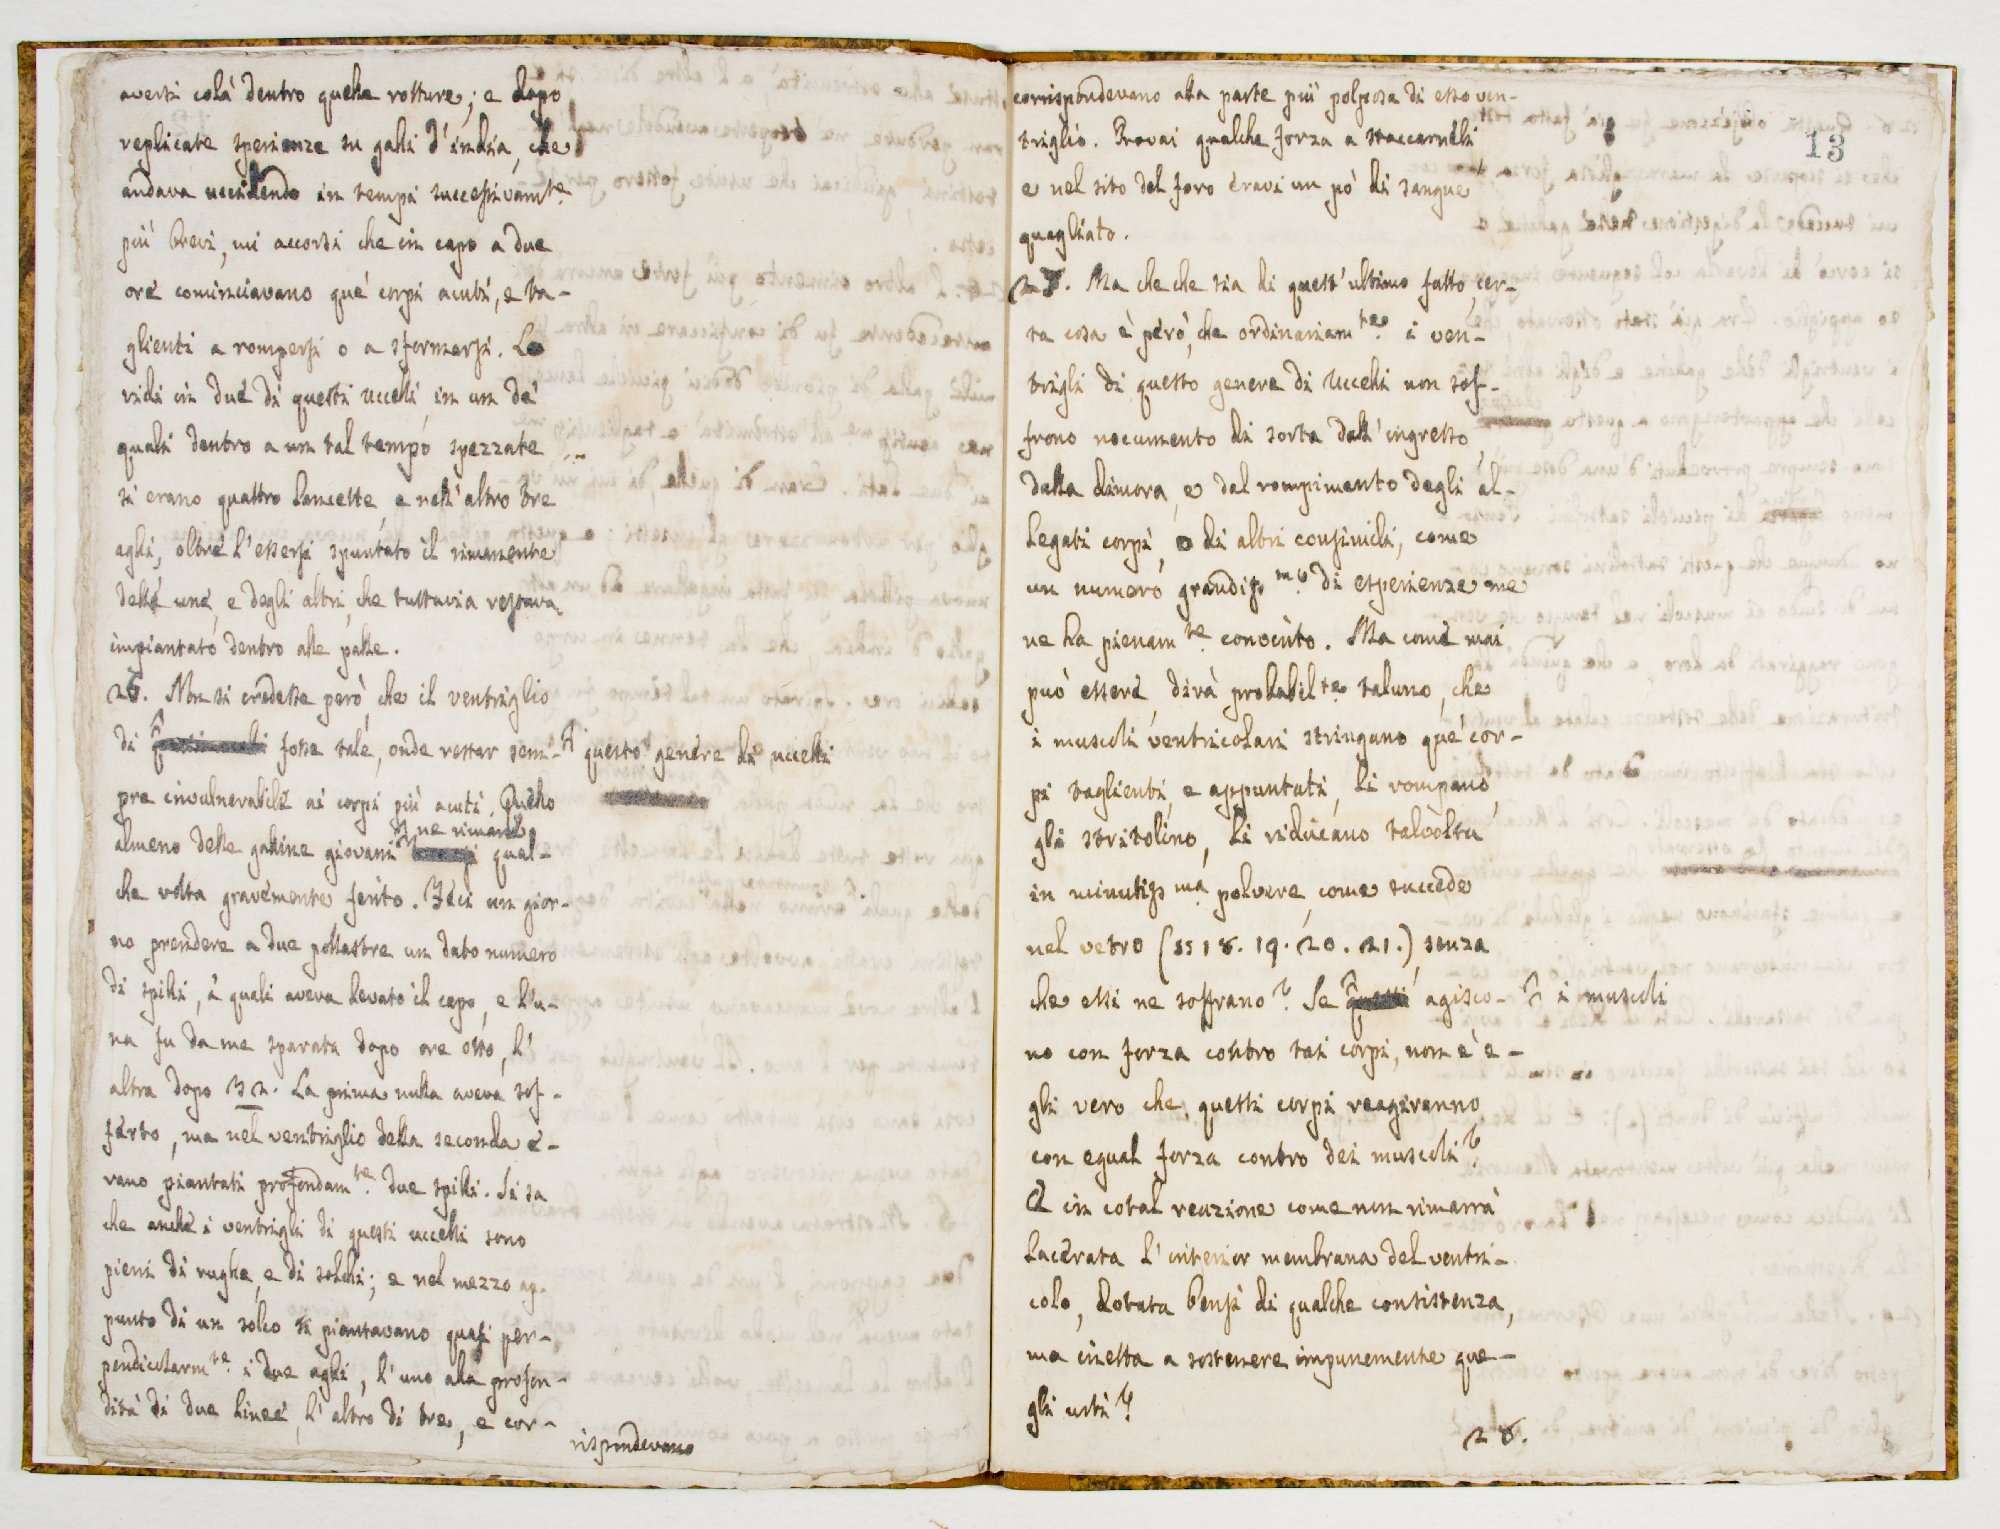 aversi colà dentro quelle rotture; e dopo
replicate sperienze su galli d'india, che
andava uccidendo in tempi successivamte.
più brevi, mi accorsi che in capo a due
ore cominciavano que' corpi acuti, e ta-
glienti a rompersi o a sformarsi. Lo
vidi in due di questi uccelli, in un de'
quali dentro a un tal tempo spezzate
si erano quattro lancette, e nell'altro tre
aghi, oltre l'essersi spuntato il rimanente
delle une, e degli altri, che tuttavia restava
impiantato dentro alle palle.
26. Non si credesse però, che il ventriglio
di fosse tale, onde restar sem-
questo genere di uccelli
pre invulnerabile ai corpi più acuti. Quello
almeno delle galline giovani ne rimane qual-
che volta gravemente ferito. Feci un gior-
no prendere a due pollastre un dato numero
di spilli, a' quali aveva levato il capo, e l'u-
na fu da me sparata dopo ore otto, l'
altra dopo 32. La prima nulla aveva sof-
ferto, ma nel ventriglio della seconda e-
rano piantati profondamte. due spilli. Si sa
che anche i ventrigli di questi uccelli sono
pieni di rughe, e di solchi; e nel mezzo ap-
punto di un solco si piantavano quasi per-
pendicolarmte. i due aghi, l'uno alla profon-
dità di due linee, l'altro di tre, e cor-
rispondevano
13
corrispondevano alla parte più polposa di esso ven-
triglio. Provai qualche forza a staccarneli
e nel sito del foro eravi un pò di sangue
quagliato.
27. Ma che che sia di quest'ultimo fatto, cer-
ta cosa è però, che ordinariamte. i ven-
trigli di questo genere di uccelli non sof-
frono nocumento di sorta dall'ingresso,
dalla dimora, e dal rompimento degli al-
legati corpi, o di altri consimili, come
un numero grandissmo. di esperienze me
ne ha pienamte. convinto. Ma come mai
può essere, dirà probabilte. taluno, che
i muscoli ventricolari stringano que' cor-
pi taglienti, e appuntati, li rompano,
gli stritolino, li riducano talvolta
in minutissma. polvere, come succede
nel vetro (§§ 18. 19. 20. 21.) senza
che essi ne soffrano? Se agisco-
i muscoli
no con forza contro tai corpi, non è e-
gli vero che questi corpi reagiranno
con egual forza contro dei muscoli?
E in cotal reazione come non rimarrà
lacerata l'interior membrana del ventri-
colo, dotata bensì di qualche consistenza,
ma inetta a sostenere impunemente que-
gli urti?
28.